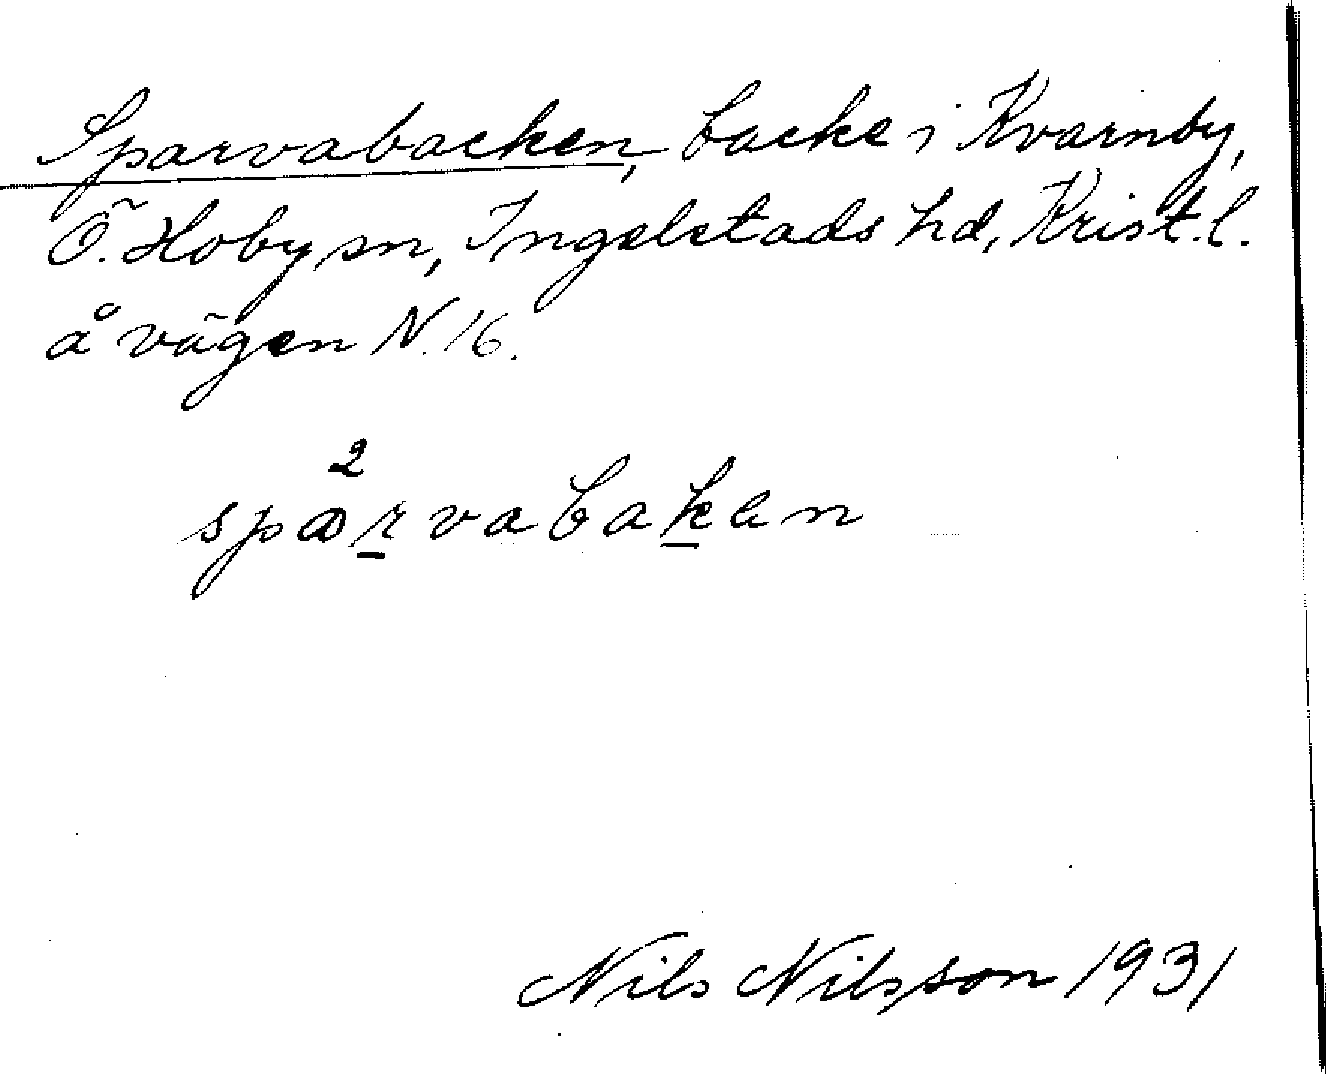 Sparvabacken, backe i Kvarnby,
Ö. Hoby sn, Ingelstads hd, Krist. l.
å vägen N. 16.
2
sparvabaken
Nils Nilsson 1931